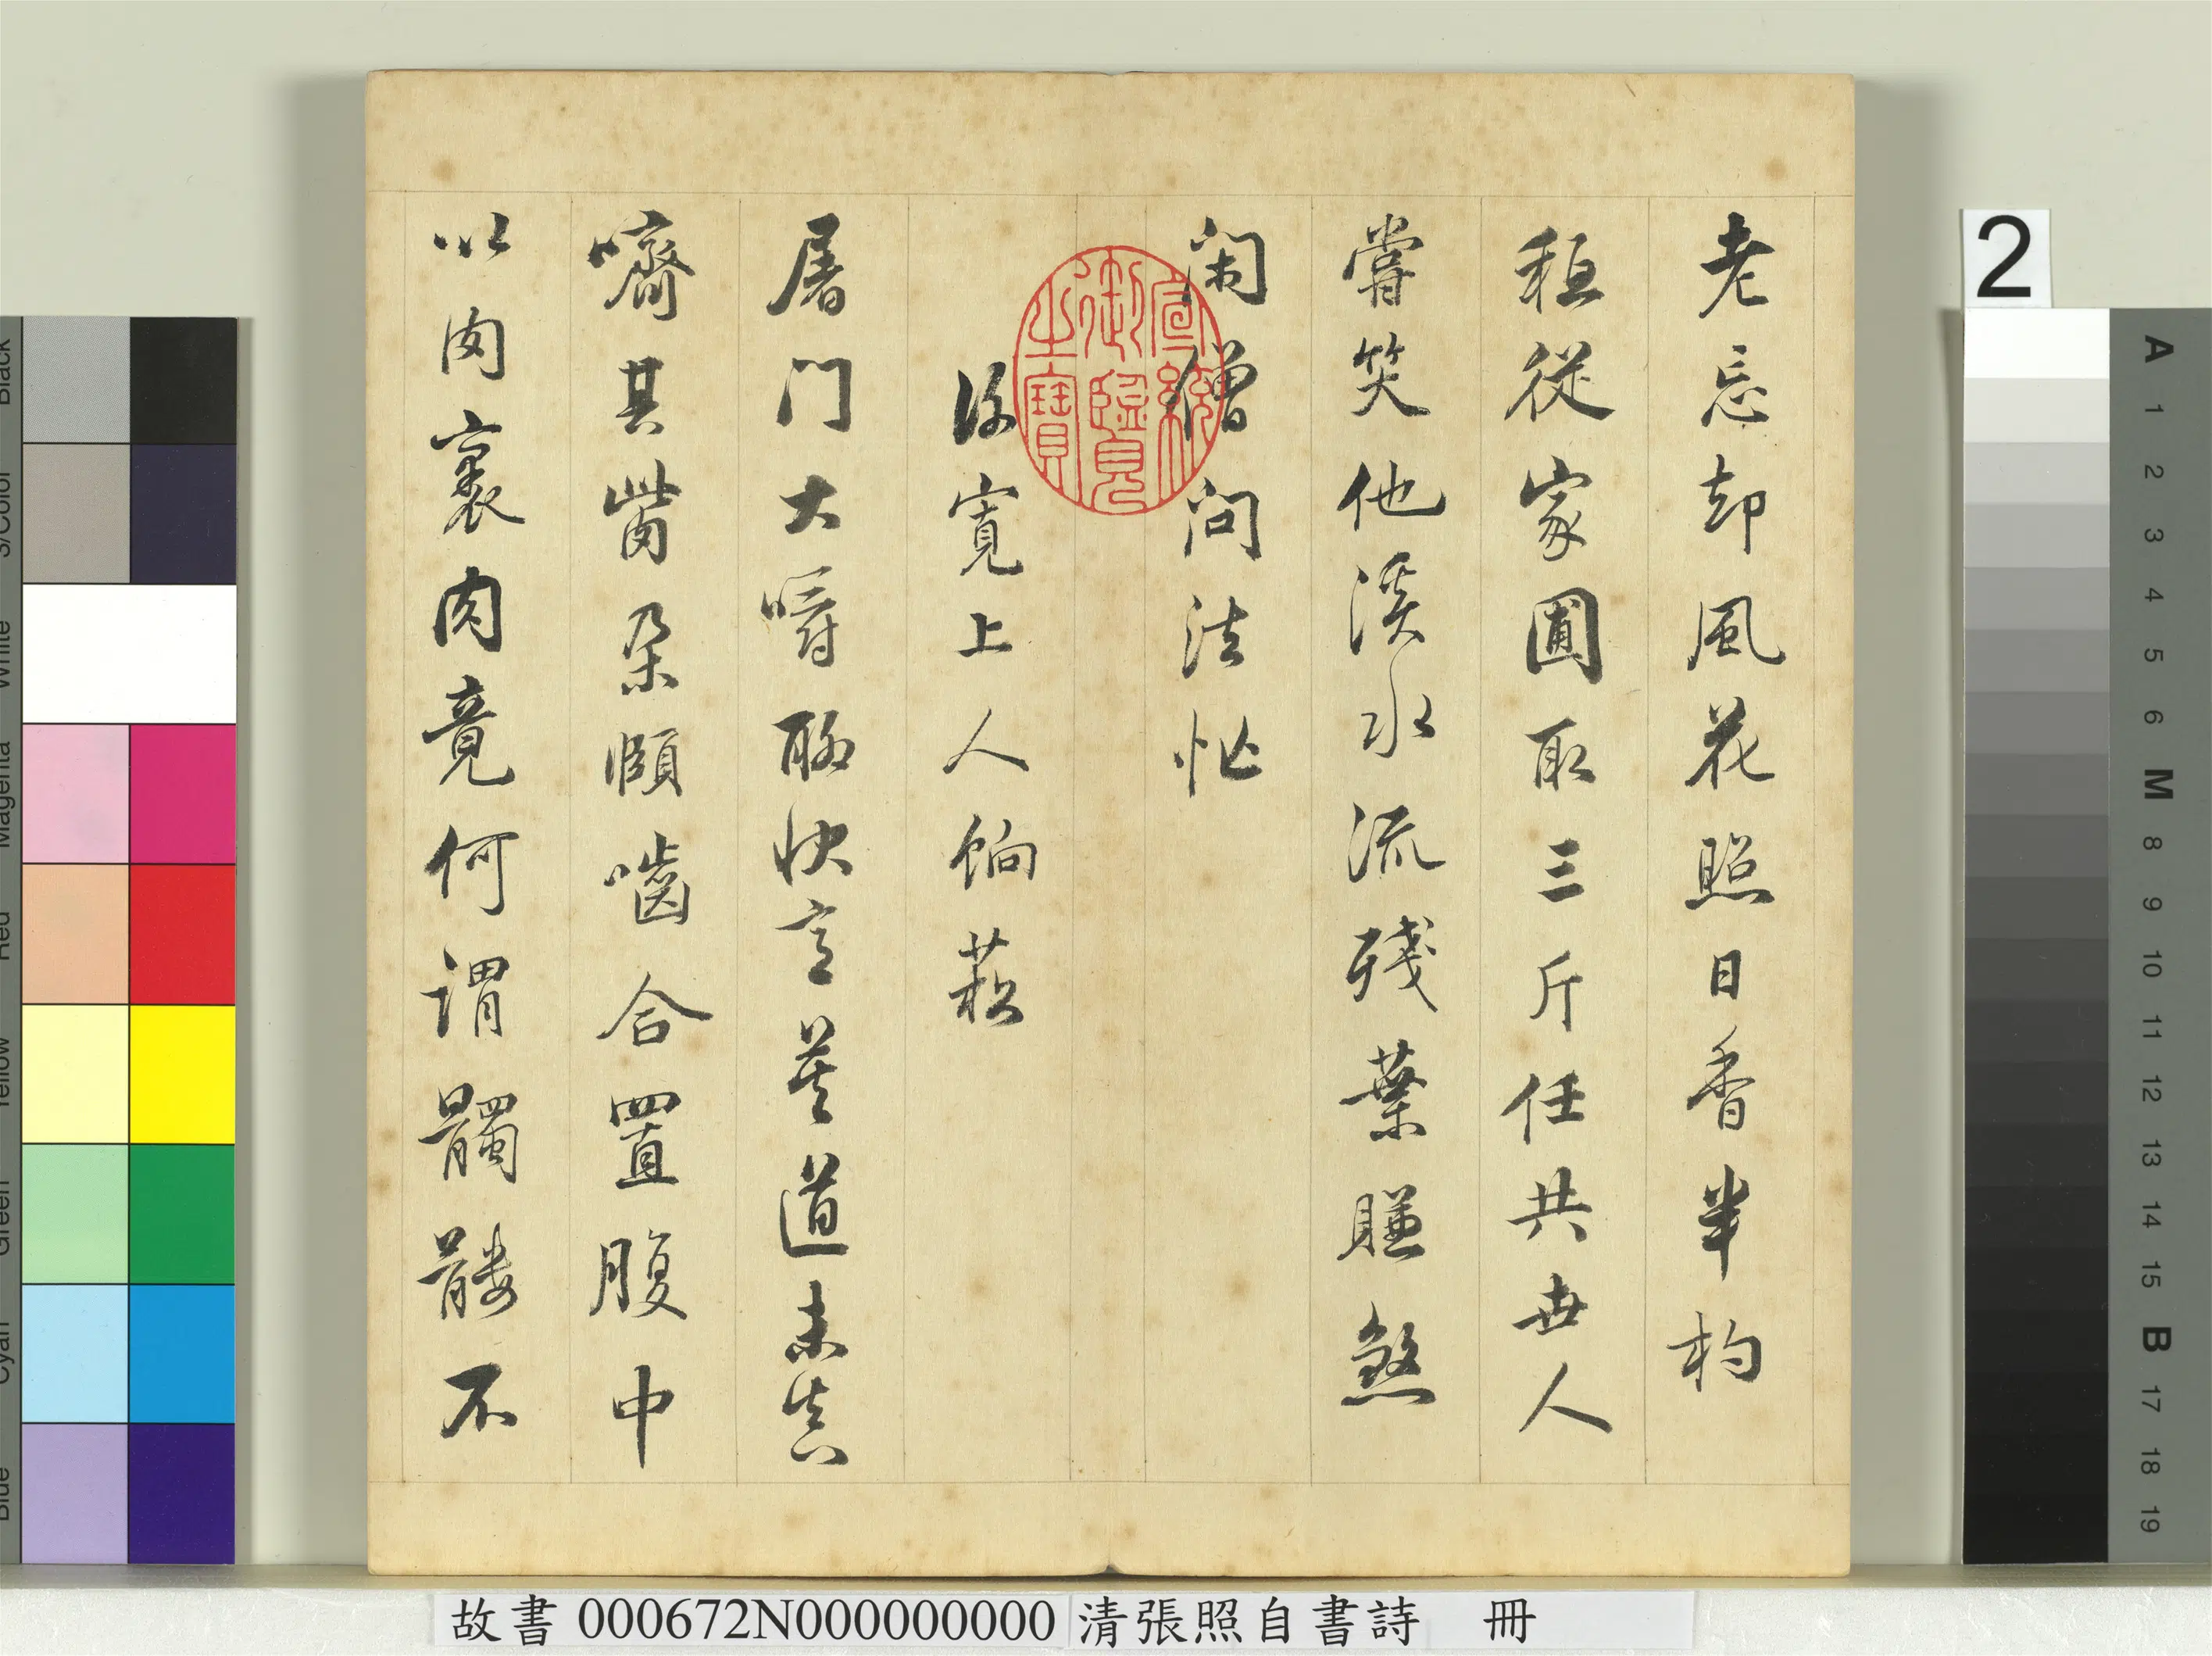 老忘却風花照日香半杓
租從家圃取三斤任共世人
嘗笑他溪水流殘葉賺煞
閑僧問法忙
寬上人餉菘
屠門大嚼聊快意莫道未真
嚌其胔朵頤嚙合置腹中
以肉裹肉竟何謂髑髏不
宣統御覽之寶
2
A 1 2 3 4 5 6 M 8 9 10 11 12 13 14 15 B 17 18 19
Black
3/Color
White
Magenta
Red
Yellow
Green
Cyan
Blue
故書 000672N000000000 清張照自書詩 冊